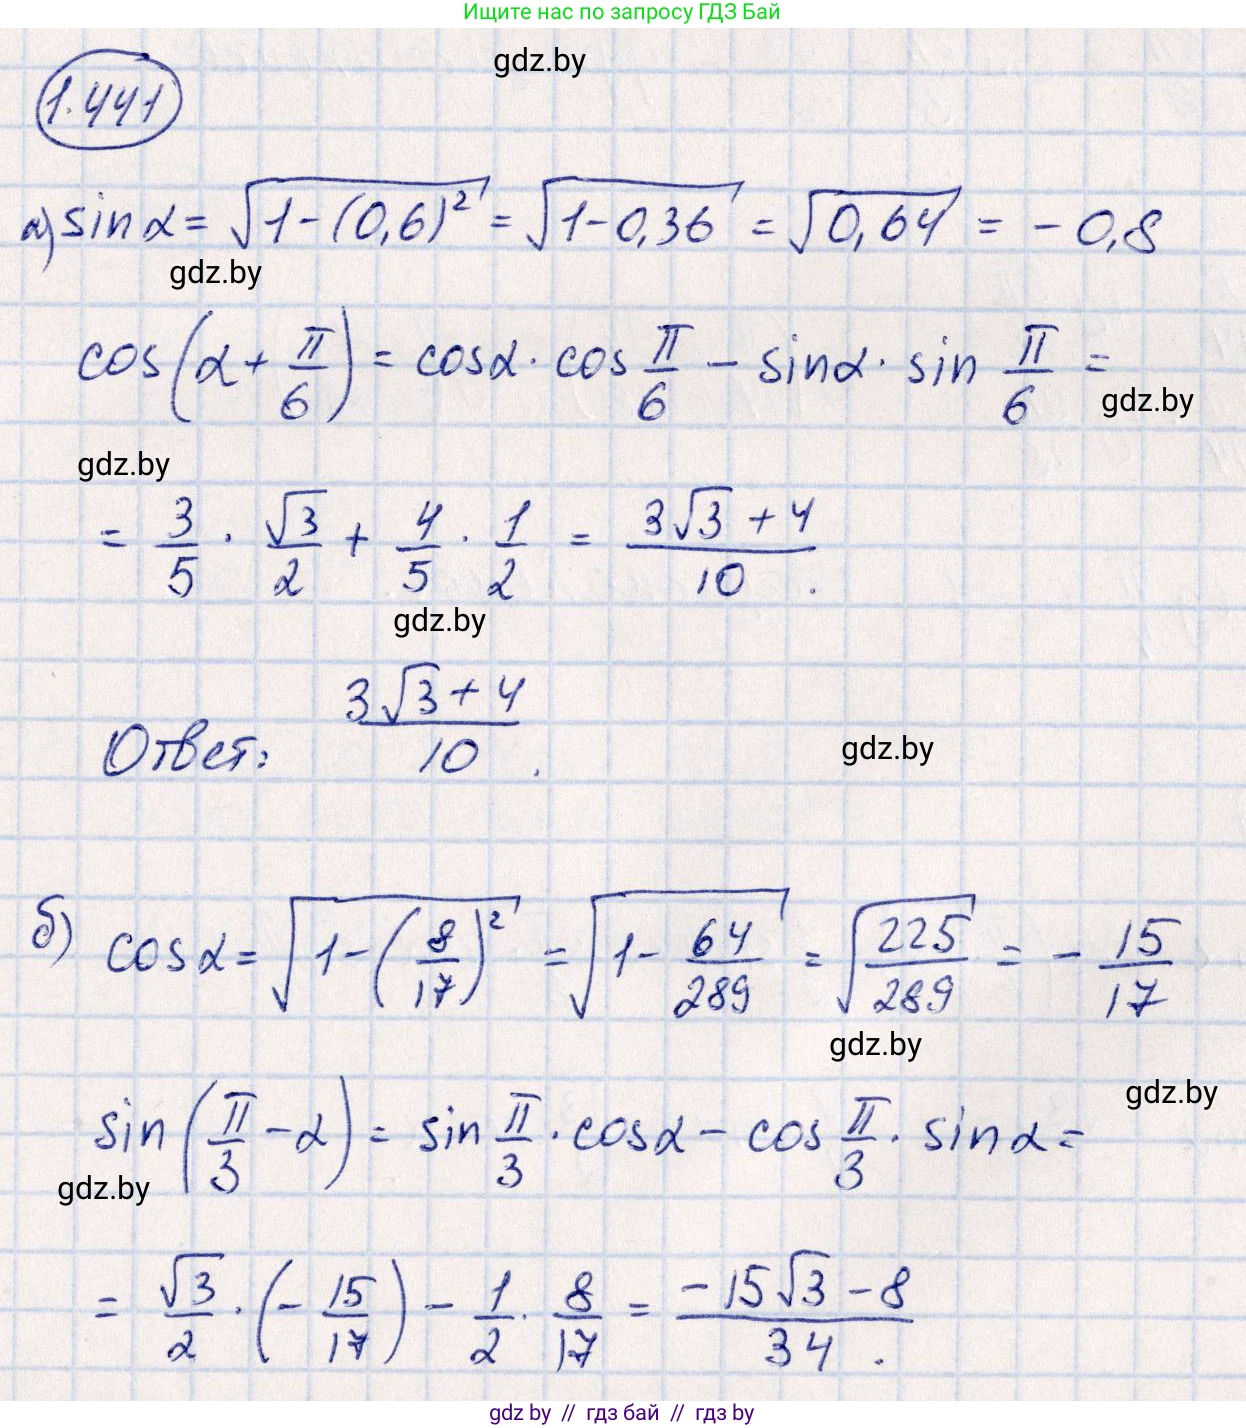 Ищите нас по запросу ГДЗ Бай
gdz.by
1.441
а) sin α = √(1-(0,6)²) = √(1-0,36) = √(0,64) = -0,8
gdz.by
cos(α + π/6) = cos α · cos π/6 - sin α · sin π/6 =
gdz.by
gdz.by
= 3/5 · √3/2 + 4/5 · 1/2 = (3√3 + 4)/10 .
gdz.by
Ответ: (3√3 + 4)/10 .
gdz.by
б) cos α = √(1-(8/17)²) = √(1 - 64/289) = √(225/289) = - 15/17
gdz.by
gdz.by
sin(π/3 - α) = sin π/3 · cos α - cos π/3 · sin α =
gdz.by
= √3/2 · (- 15/17) - 1/2 · 8/17 = (-15√3 - 8)/34 .
gdz by // гдз бай // gdz by